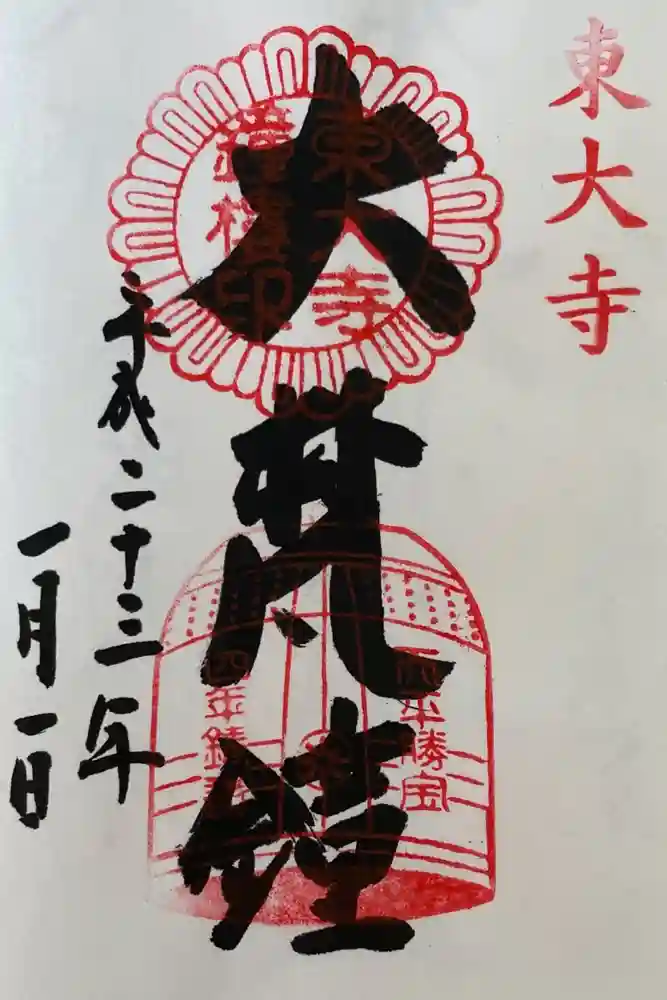 東大寺
大梵鐘
東大寺
鐘楼印
天平勝宝
四年鋳
平成二十三年
一月一日